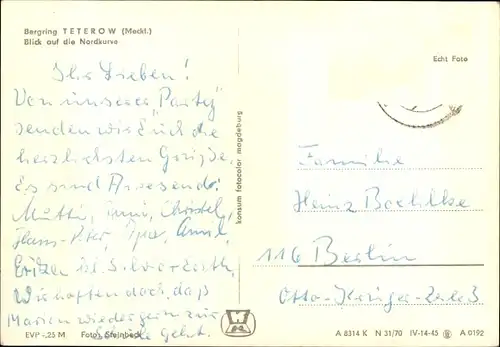 Bergring TETEROW (Meckl.)
Blick auf die Nordkurve
Echt Foto
Ihr Lieben!
Von unserer "Party"
senden wir Euch die
herzlichsten Grüße.
Es sind Anwesend:
Mutti, Christel,
Hans-Peter,
Wir hoffen doch, daß
wieder gern zur
Schule geht.
konsum fotocolor magdeburg
Familie
Heinz Boehlke
116 Berlin
Otto-
EVP -,25 M Foto: Steinbeck
A 8314 K N 31/70 IV-14-45 A 0192